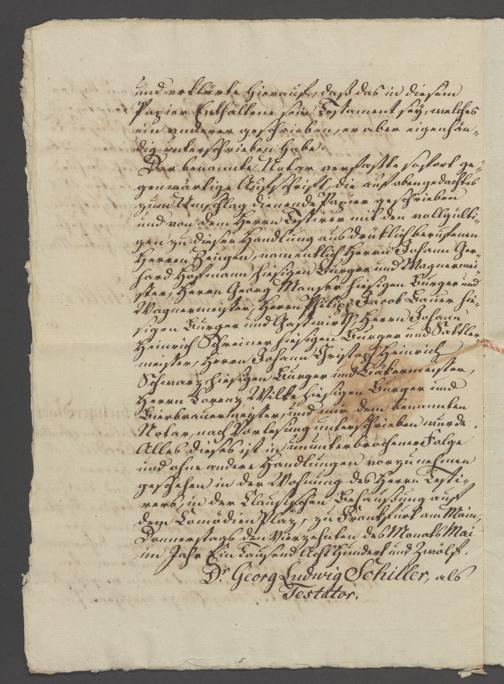 und erklärte hierauf, daß das in diesem
Papier Enthaltene sein Testament sey, welches
ein anderer geschrieben, er aber eigenhän-
dig unterschrieben habe.
Der benannte Notar verfaßte sofort ge-
genwärtige Aufschrift, die auf obengedachtes
zum Umschlag dienende Papier geschrieben
und von dem Herrn Testirer mit den vollgülti-
gen zu dieser Handlung ausdrücklich berufenen
Herren Zeugen, namentlich Herrn Johann Ger-
hard Hofmann hiesigen Burger und Wagnermei-
ster, Herrn Georg Manser hiesigen Burger und
Wagnermeister, Herrn Philipp Jacob Bauer hie-
sigen Burger und Gastwirth, Herrn Johann
Heinrich Schreiner hiesigen Burger und Sattler-
meister, Herrn Johann Christoph Heinrich
Schwarz hiesigen Burger und Bäkermeister,
Herrn Lorenz Wilke hiesigen Burger und
Bierbrauermeister, und mir dem benannten
Notar, nach Vorlesung unterschrieben wurde.
Alles dieses ist in ununterbrochener Folge
und ohne andere Handlungen vorzunehmen
geschehen in der Wohnung des Herrn Testi-
rers, in der Behausung auf
dem Comödien Plaz, zu Frankfurt am Main,
Donnerstags den Vierzehnten des Monats Mai
im Jahr Ein Tausend Acht Hundert und Zwölf.
Dr Georg Ludwig Schiller, als
Testator.